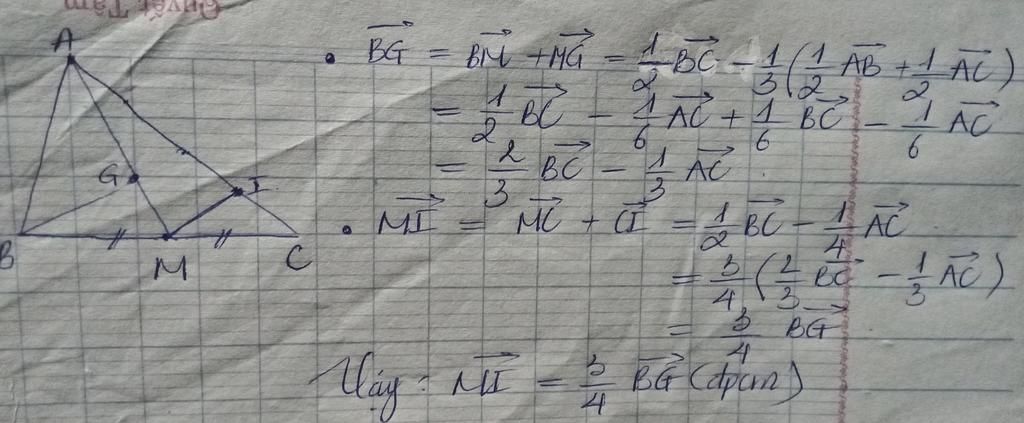 Quyết Tâm
A
G
I
B
M
C
• \overrightarrow{BG} = \overrightarrow{BM} + \overrightarrow{MG} = \frac{1}{2} \overrightarrow{BC} - \frac{1}{3} (\frac{1}{2} \overrightarrow{AB} + \frac{1}{2} \overrightarrow{AC})
= \frac{1}{2} \overrightarrow{BC} - \frac{1}{6} \overrightarrow{AC} + \frac{1}{6} \overrightarrow{BC} - \frac{1}{6} \overrightarrow{AC}
= \frac{2}{3} \overrightarrow{BC} - \frac{1}{3} \overrightarrow{AC}
• \overrightarrow{MI} = \overrightarrow{MC} + \overrightarrow{CI} = \frac{1}{2} \overrightarrow{BC} - \frac{1}{4} \overrightarrow{AC}
= \frac{3}{4} (\frac{2}{3} \overrightarrow{BC} - \frac{1}{3} \overrightarrow{AC})
= \frac{3}{4} \overrightarrow{BG}
Vậy : \overrightarrow{MI} = \frac{3}{4} \overrightarrow{BG} (đpcm)